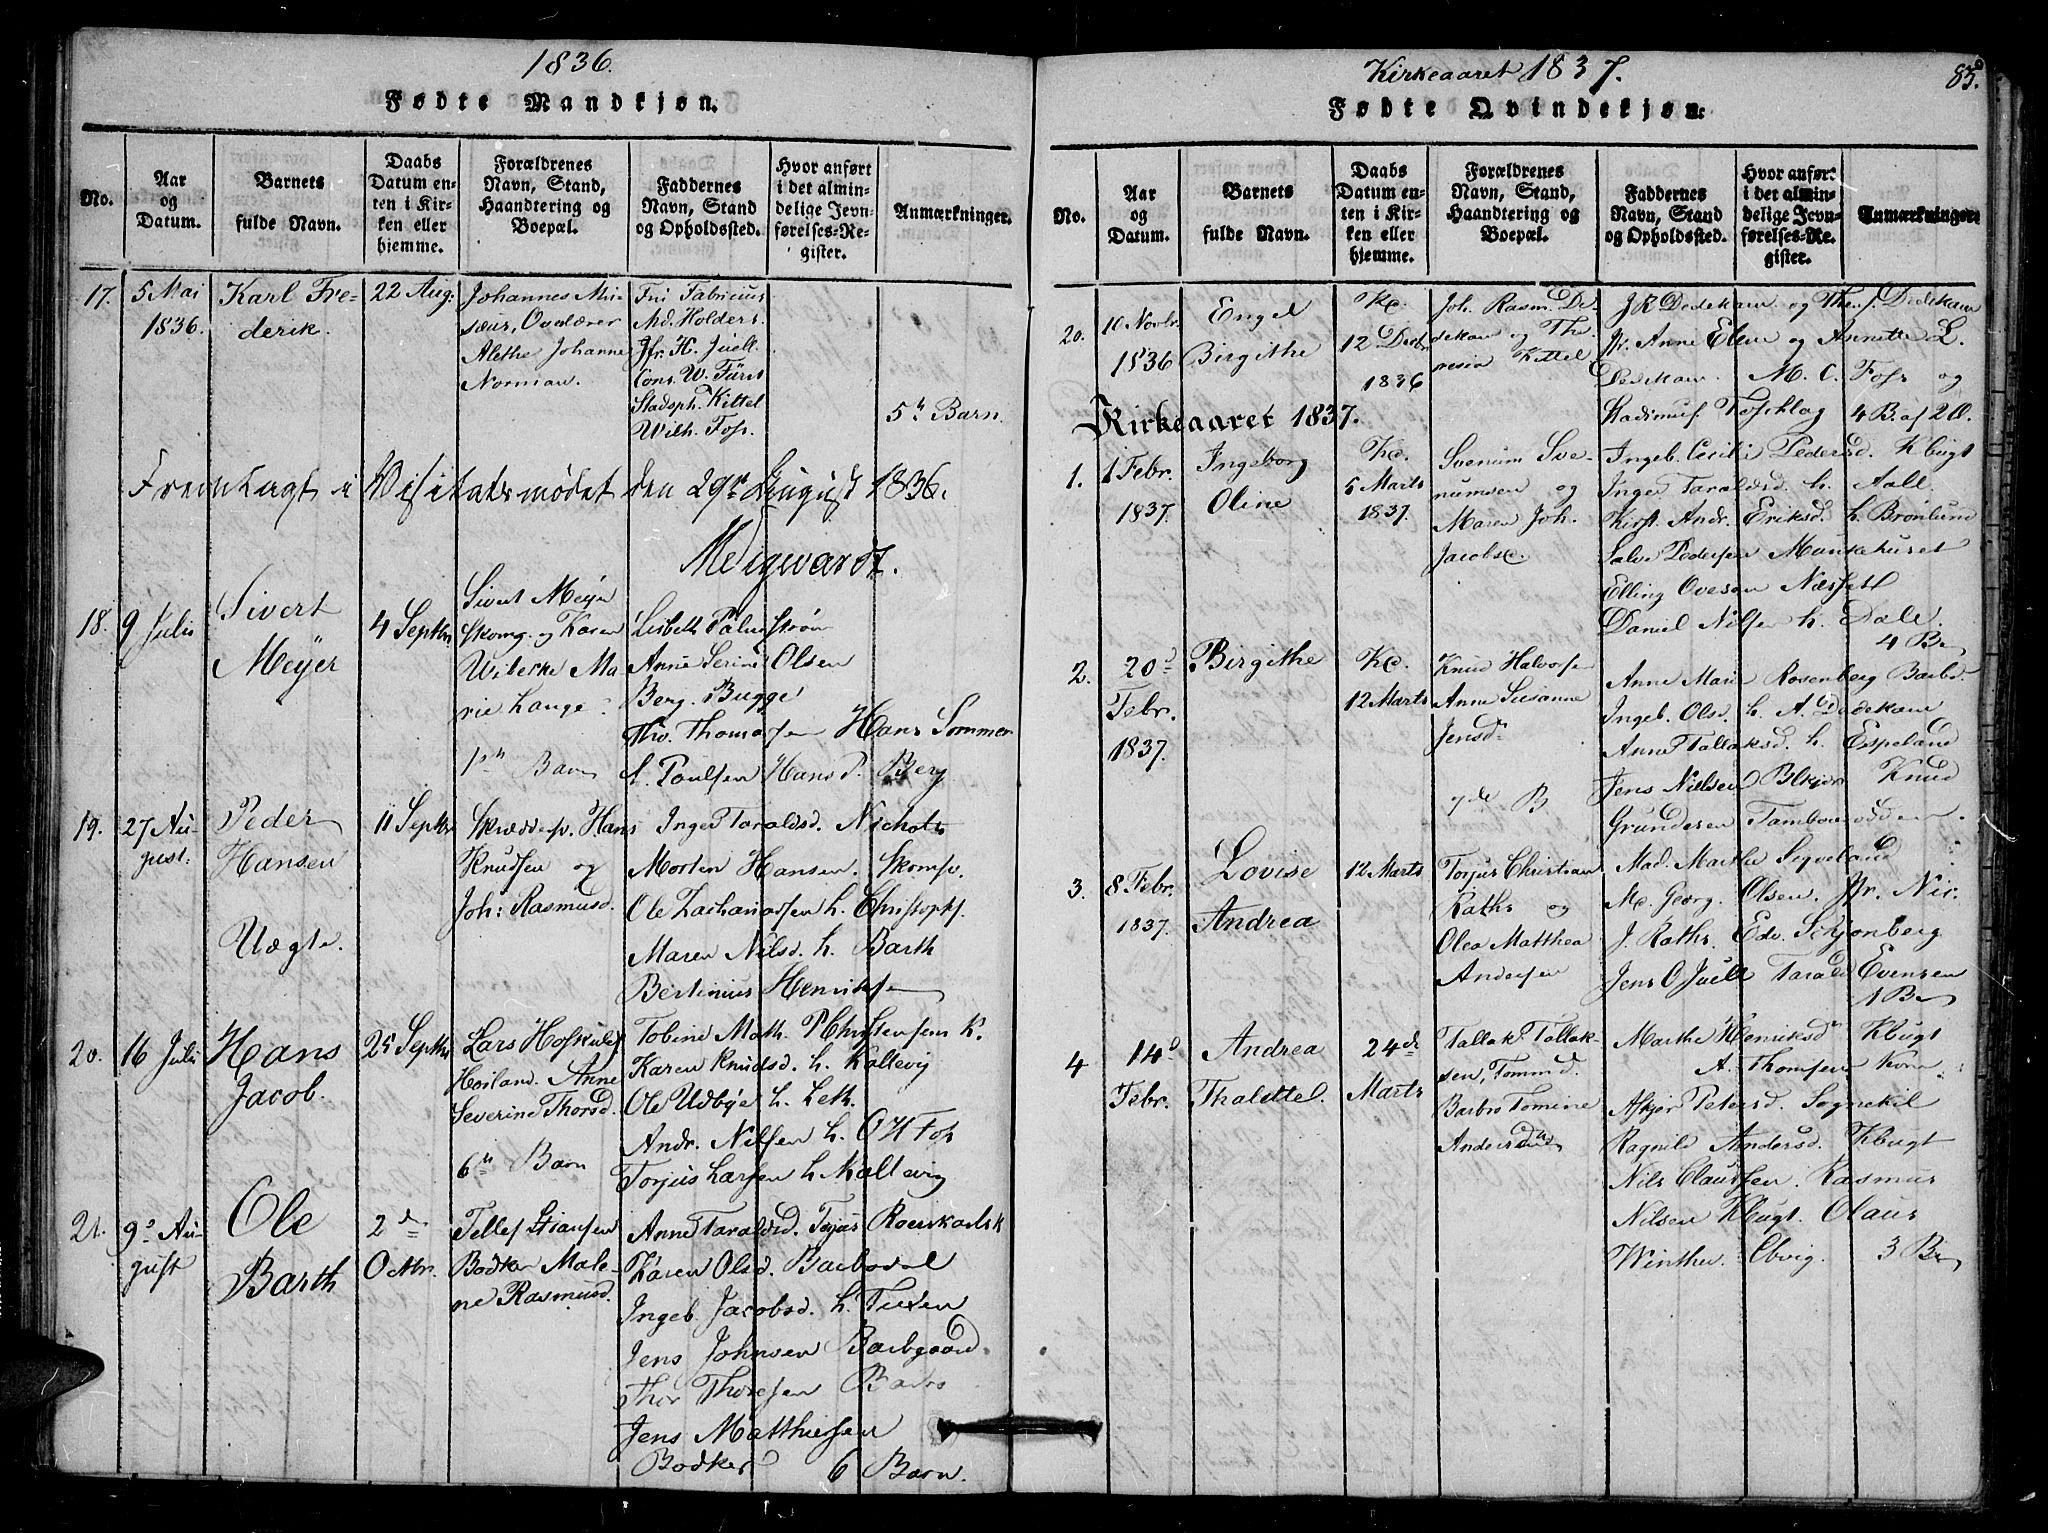 1836.
Fødte Mandkjøn.
No.
Aar og Datum.
Barnets fulde Navn.
Daabs Datum enten i Kirken eller hjemme.
Forældrenes Navn, Stand, Haandtering og Boepæl.
Faddernes Navn, Stand og Opholdssted.
Hvor anført i det almindelige Jevnførelses-Register.
Anmærkninger.
17. 5 Mai 1836.
Karl Frederik.
22 Aug.
Johannes
Alethe Johanne
Norman.
Fru Fabricius
Md. Holders.
Jfr. H. Juell.
Cons. W. Fürst
Stadsph. Kittel
Wilh. Foss.
5h Barn.
Fremlagt i Visitatsmødet den 29de August 1836.
18. 9 Julii
Sivert
Meÿer
4 Septbr
Sivert Meÿer
Skomg. og Karen
Wibecke Ma-
rie Lange.
1ste Barn
Lisbeth Palmstrøm
Anne Serine Olsen
Berg. Bugge
Tho. Thomassen Hans Sommer
L. Poulsen Hans P. Berg
19. 27 August.
Peder
Hansen
Uægte.
11 Septbr
Skreddersv. Hans
Knudsen og
Joh: Rasmusd.
Inger Taraldsd. Nicholas
Morten Hansen. Skomsv.
Ole Zachariassen h. Christophs.
Maren Nilsd. h. Barth
Bertinius Henriksen
20. 16 Julii
Hans
Jacob.
25 Septbr
Lars Hofskulds
Heiland. Anne
Severine Thorsd.
6te Barn
Tobine Math. P Christensens K.
Karen Knudsd. h. Kallevig
Ole Udbÿe h. Leth.
Andr. Nilsen h. O H Foss
Torjus Larsen h. Kallevig
21. 9de August
Ole
Barth
2den
Octbr.
Tellef Stiansen
Bødker Male-
ne Rasmusd.
Anne Taraldsd. Torjus
Karen Olsd. Barbodal
Ingeb. Jacobsd. h. Tuxen
Jens Johnsen Barbgaard.
Thor Thoresen Barbo
Jens Matthiesen
Bødker 6 Barn.
Kirkeaaret 1837.
85.
Fødte Qvindekjøn.
No.
Aar og Datum.
Barnets fulde Navn.
Daabs Datum enten i Kirken eller hjemme.
Forældrenes Navn, Stand, Haandtering og Boepæl.
Faddernes Navn, Stand og Opholdssted.
Hvor anført i det almindelige Jevnførelses-Register.
Anmærkninger.
20. 10 Novbr. 1836
Engel
Birgithe
Kc.
12 Decbr
1836
Joh. Rasm. De-
dekam og The-
resia Kittel
J R Dedekam og Ther. J. Dedekam
Jfr. Anne Elene og Annette L.
Dedekam. M. C. Foss og
Stadsmus. Tosklag 4 B. af 2 Æ.
Kirkeaaret 1837.
1. 1 Febr. 1837.
Ingeborg
Oline
Kc.
5 Marts
1837.
Svenum Sve-
numsen og
Maren Joh.
Jacobs.
Ingeb. Cecilie Pedersd. Kbugt
Inger Taraldsd. h. Aall.
Kirst. Andr. Eriksd. h. Brønlund
Salve Pedersen Munkehuset
Elling Ovesen Næsset
Daniel Nilsen h. Dale.
4 Bn
2. 20de Febr. 1837.
Birgithe
Kc.
12 Marts
Knud Halvorsen
Anne Susanne
Jensdr
7de B
Anne Marie Rosenberg Barbo
Ingeb. Olsd. h. A. Dedekam
Anne Tallaksd. h. Espeland
Jens Nielsen Knud
Gundersen
3. 8 Febr. 1837.
Lovise
Andrea
12 Marts
Torjus Christian
Raths og
Olea Matthea
Andersen
Mad. Marthe Sigveland
Mc. Georg. Olsen. Jfr. Nic.
J. Raths. Edv. Schjønberg
Jens O Juell Tarald Evensen
1 Bn
4 14de Febr.
Andrea
Thalette.
24de
Marts
Tallak Tallak-
sen, Tømmd.
Barbro Tomine
Andersdn
Marthe Henriksdr Kbugt
A. Thomsen Kone
Askjer Petersd. Songekil
Ragnild Andersd. Kbugt
Nils Claussen. Rasmus
Nilsen Kbugt. Olaus
Winther. 3 Bn